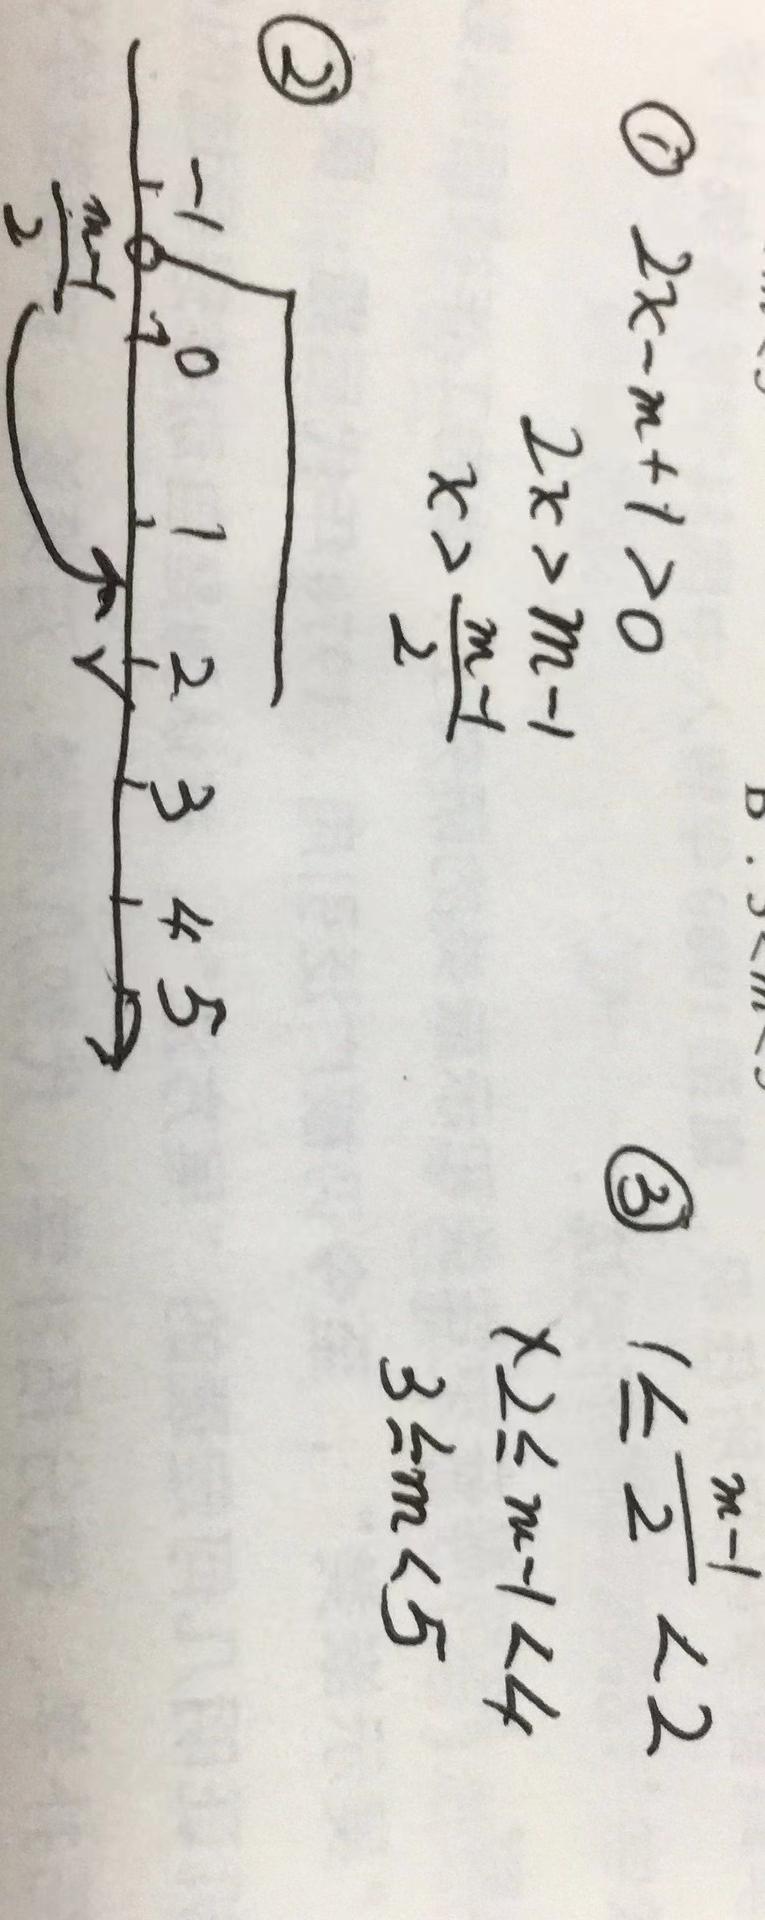 B. 3<m<5
① 2x-m+1>0
2x>m-1
x>\frac{m-1}{2}
②
-1 0 1 2 3 4 5
\frac{m-1}{2}
③ 1≤\frac{m-1}{2}<2
×2≤m-1<4
3≤m<5